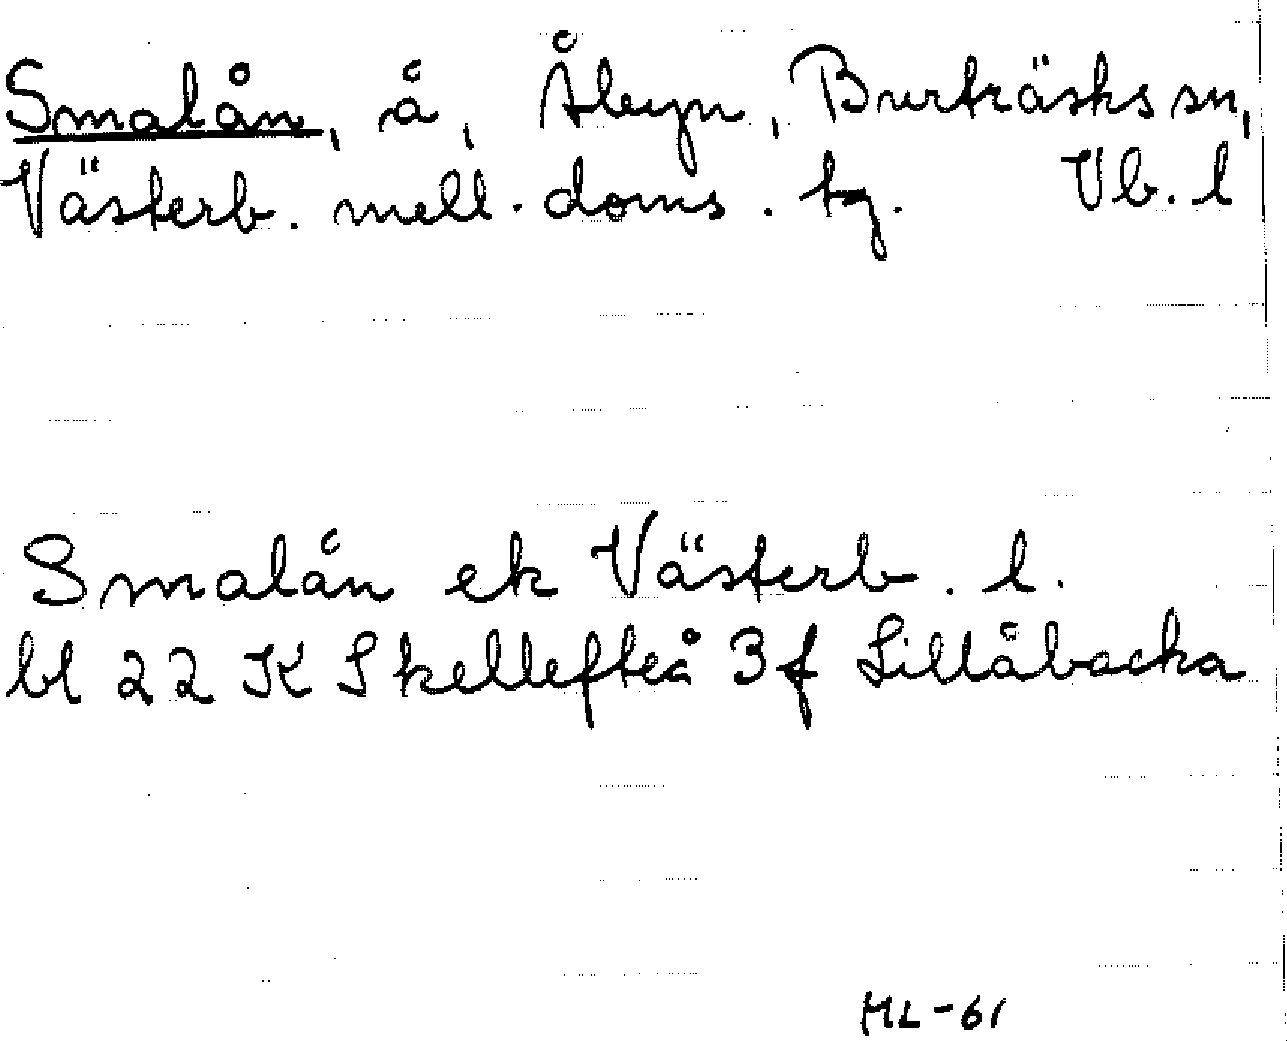 Smalån, å, Åbyn, Burträsks sn,
Västerb. mell. doms. tg. Vb. l
Smalån ek Västerb. l.
bl 22 K Skellefteå 3f Lillåbacka
HL-61